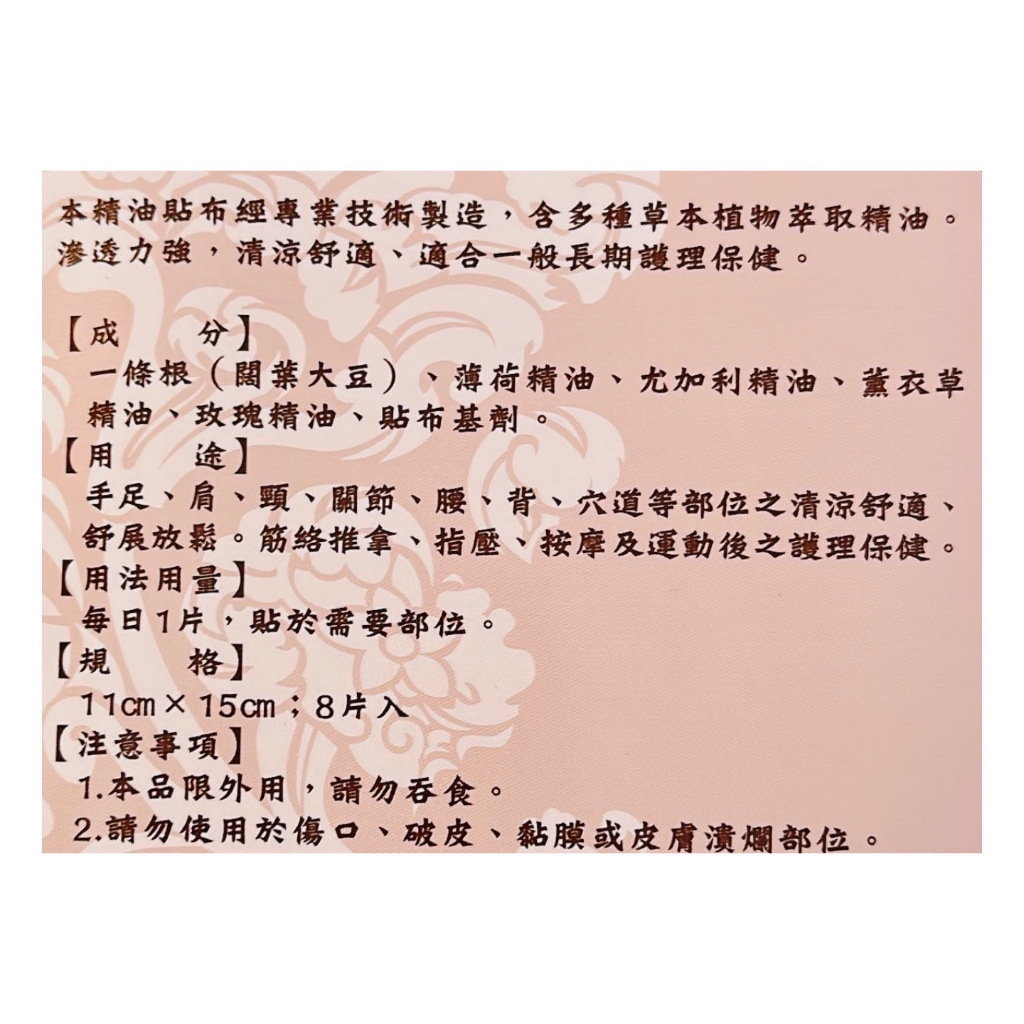 本精油貼布經專業技術製造，含多種草本植物萃取精油。
滲透力強，清涼舒適、適合一般長期護理保健。
【成　　分】
一條根（闊葉大豆）、薄荷精油、尤加利精油、薰衣草
精油、玫瑰精油、貼布基劑。
【用　　途】
手足、肩、頸、關節、腰、背、穴道等部位之清涼舒適、
舒展放鬆。筋絡推拿、指壓、按摩及運動後之護理保健。
【用法用量】
每日1片，貼於需要部位。
【規　　格】
11cm×15cm；8片入
【注意事項】
1.本品限外用，請勿吞食。
2.請勿使用於傷口、破皮、黏膜或皮膚潰爛部位。